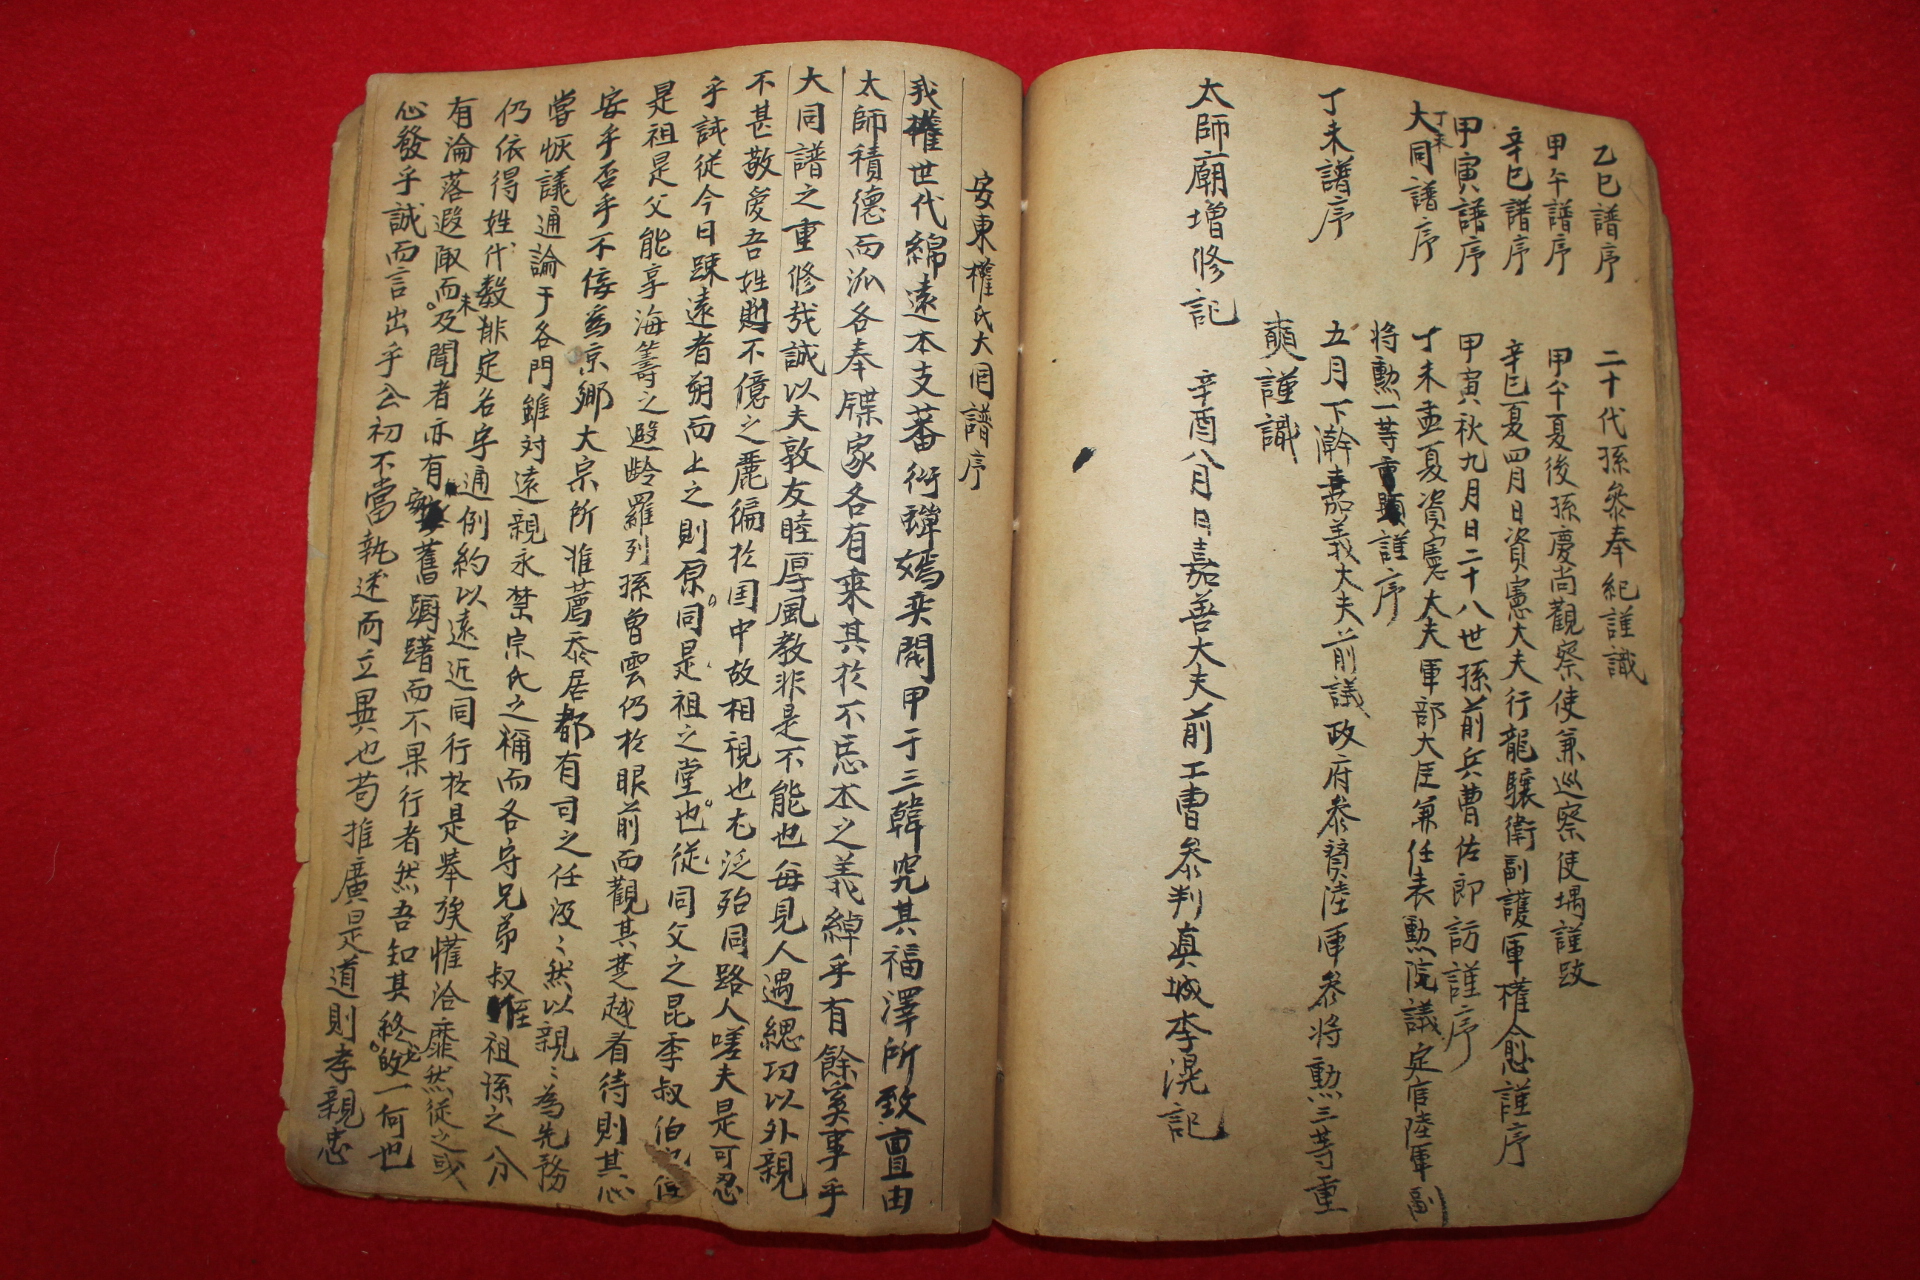 乙巳譜序 二十代孫叅奉紀謹識
甲午譜序 甲午夏後孫慶尚觀察使兼巡察使堣謹跋
辛巳譜序 辛巳夏四月日資憲大夫行龍驤衛副護軍權悆謹序
甲寅譜序 甲寅秋九月日二十八世孫前兵曹佐郎訪謹序
丁未大同譜序 丁未孟夏資憲大夫軍部大臣兼任表勲院議定官陸軍副
將勲一等重顯謹序
丁未譜序 五月下澣嘉義大夫前議政府叅贊陸軍叅將勲三等重
奭謹識
太師廟增修記 辛酉八月日嘉善大夫前工曹叅判真城李滉記
安東權氏大同譜序
我權世代綿遠本支蕃衍蟬嫣奕閥甲于三韓究其福澤所致亶由
太師積德而派各奉牒家各有乘其於不忘本之義綽乎有餘奚事乎
大同譜之重修㢤誠以夫敦友睦厚風教非是不能也每見人遇緦功以外親
不甚敬愛吾姓則不億之麗徧於國中故相視也尤泛殆同路人嗟夫是可忍
乎試從今日踈遠者朔而上之則原同是祖之堂也從同父之昆季叔伯
是祖是父能享海籌之遐齡羅列孫曾雲仍於眼前而觀其楚越看待則其心
安乎否乎不佞為京鄉大宗所推薦忝居都有司之任汲〻然以親〻為先務
嘗恢議通論于各門雖対遠親永禁宗氏之稱而各守兄弟叔侄祖孫之分
仍依得姓代數排定名字通例約以遠近同行於是擧族懽洽靡然從之或
有淪落遐陬而未及聞者亦有安舊躕躇而不果行者然吾知其終必一何也
心發乎誠而言出乎公初不當執迷而立異也苟推廣是道則孝親忠